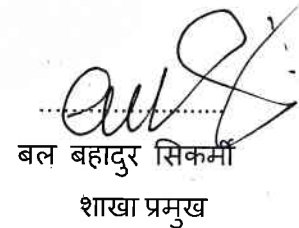 बल बहादुर सिकर्मी
शाखा प्रमुख